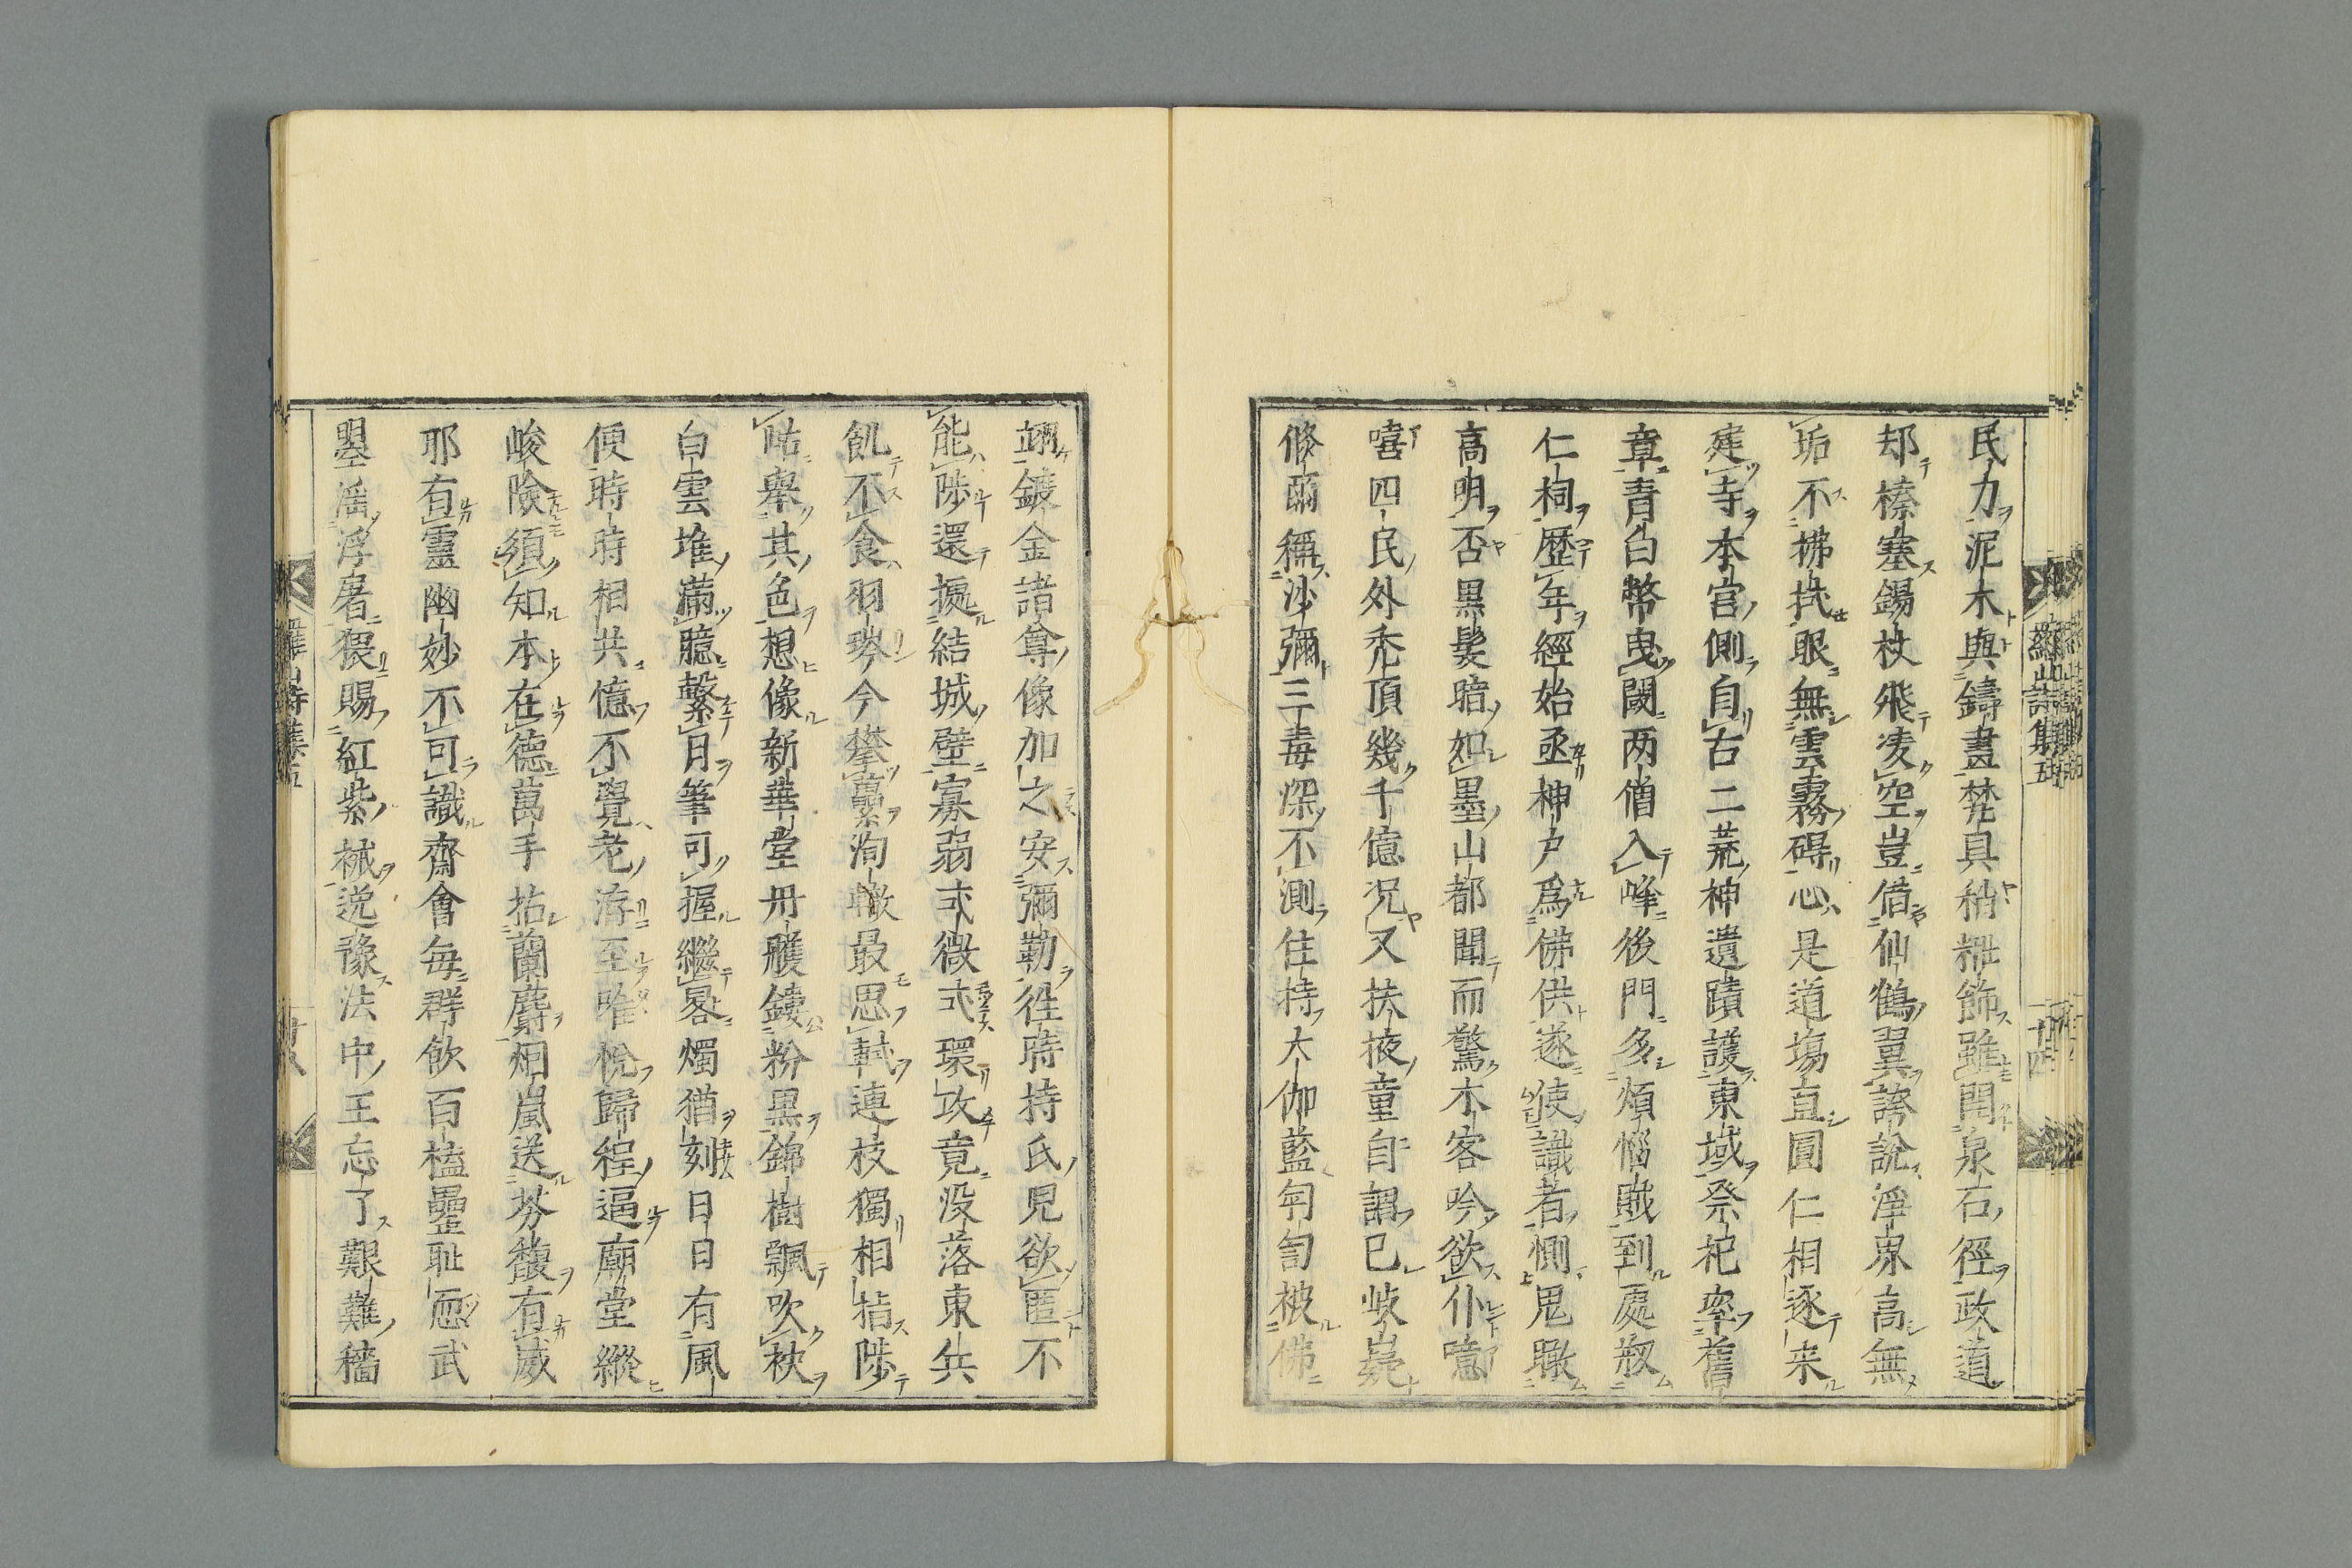 民力泥木與鑄畫梵具稍糚飾雖開泉石徑政道
却榛塞錫杖飛凌空豈借仙鶴翼誇說淨界高無
垢不拂拭眼無雲霧碍心是道塲直圓仁相逐来
建寺本宫側自古二荒神遺蹟護東域祭祀率舊
章青白幣曳閾两僧入峰後門多煩惱賊到處剏
仁祠歷年經始亟神戶爲佛供遂使識者惻鬼瞰
高明否黑髮暗如墨山都聞而驚木客吟欲仆噫
嘻四民外禿頂幾千億况又扶掖童自謂已岐嶷
修爾稱沙彌三毒深不測住持大伽藍匍匐被佛
翊鍍金諸尊像加之安彌勒徃時持氏兒欲匿不
能陟還據結城壁寡弱弌微弌環攻竟没落東兵
飢不食羽琴今攀蘽洵轍最思軾連枝獨相拮陟
岵舉其色想像新華堂丹雘鏤粉黑錦樹飄吹袂
白雲堆滿臆繫月筆可握繼晷燭猶刻日日有風
便時時相共憶不覺老洊至唯悅歸程逼廟堂縱
峻險須知本在德萬手拈蘭麝烟嵐送芬馥有威
耶有靈幽妙不可識齋會每群飲百榼罍耻恧武
墨淫浮屠猥賜紅紫裓逸豫法中王忘了艱難穡
羅山詩集五
十四